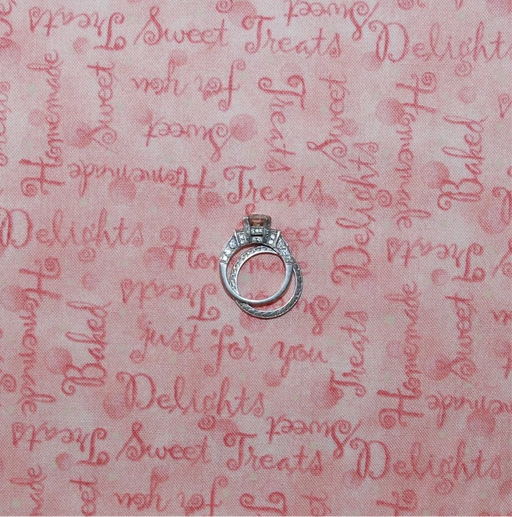 Treats Sweet Treats Delights
Sweet
Homemade
Sweet
for you
Treats
Sweet
Homemade
Baked
Sweet
Homemade Treats
Delights
Delights
Treats
Homemade
Baked
just for you
Treats
Homemade
Sweet
Homemade
Delights
Sweet
Treats Sweet Treats Delights
for you